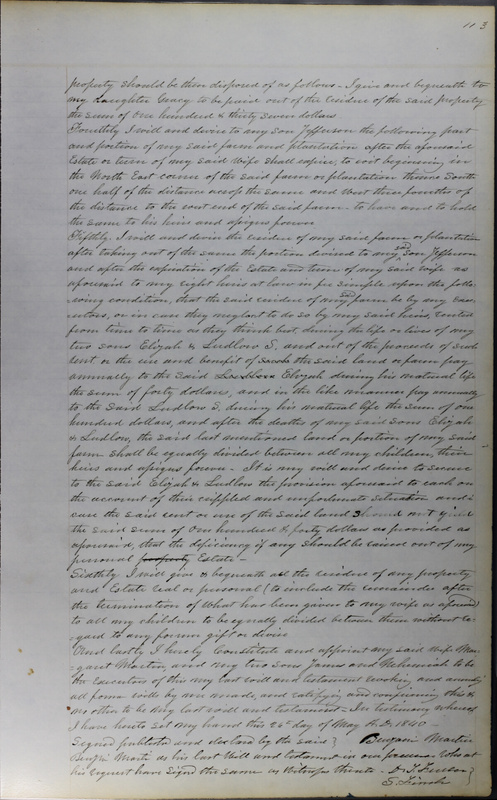 113
property should be then disposed of as follows - I give and bequeath to
my daughter to be paid out of the residue of the said property
the sum of One hundred & thirty seven dollars
Fourthly I will and devise to my son Jefferson the following part
and portion of my said farm and plantation after the aforesaid
Estate or term of my said wife shall expire, to wit beginning in
the North East corner of the said farm or plantation thence South
one half of the distance across the same and West three fourths of
the distance to the west end of the said farm - to have and to hold
the same to his heirs and assigns forever
Fifthly. I will and devise the residue of my said farm or plantation
after taking out of the same the portion devised to my said Son Jefferson
and after the expiration of the Estate and term of my said wife as
aforesaid to my right heirs at law in fee simple upon the follo-
wing condition, that the said residue of my said farm be by my exe-
cutors, or in case they neglect to do so by my said heirs, rented
from time to time as they think best during the life or lives of my
two sons Elijah & Ludlow S, and out of the proceeds of such
rent or the use and benefit of the said land or farm pay
annually to the said Elijah during his natural life
the sum of forty dollars, and in the like manner pay annually
to the said Ludlow S. during his natural life the sum of one
hundred dollars, and after the deaths of my said sons Elijah
& Ludlow, the said last mentioned land or portion of my said
farm shall be equally divided between all my children, their
heirs and assigns forever - It is my will and desire to secure
to the said Elijah & Ludlow the provision aforesaid to each on
the account of their crippled and unfortunate situation and in
case the said rent or use of the said land should not yield
the said sum of One hundred & forty dollars as provided as
aforesaid, that the deficiency if any should be raised out of my
personal property Estate -
Sixthly I will give & bequeath all the residue of my property
and Estate real or personal (to include the remainder after
the termination of what has been given to my wife as aforesaid)
to all my children to be equally divided between them without re-
gard to any former gift or devise
And lastly I hereby Constitute and appoint my said wife Mar-
garet Martin, and my two sons James and Nehemiah to be
the Executors of this my last will and testament revoking and annulling
all former wills by me made, and ratifying and confirming this &
no other to be my last will and testament - In testimony whereof
I have hereto set my hand this day of May A.D. 1840 -
Signed published and declared by the said } Benjamin Martin
Benjn Martin as his last Will and testament in our presence who at
his request have signed the same as Witness thereto -